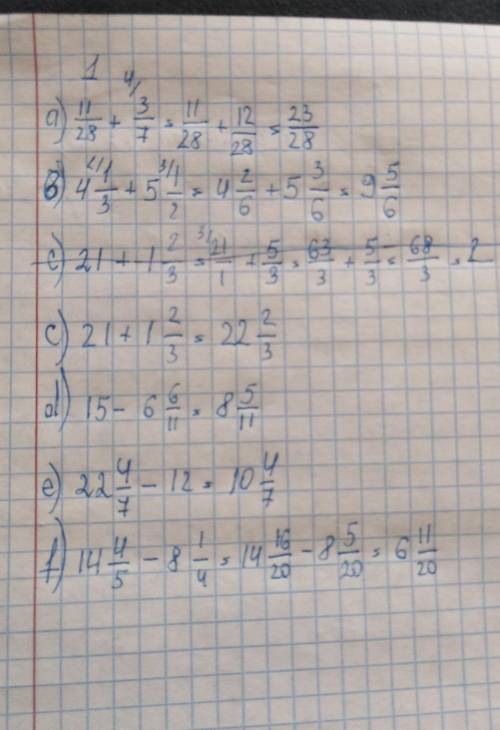 1
a) 11/28 + 4/ 3/7 = 11/28 + 12/28 = 23/28
b) 4 2/ 1/3 + 5 3/ 1/2 = 4 2/6 + 5 3/6 = 9 5/6
c) 21 + 1 2/3 = 3/ 21/1 + 5/3 = 63/3 + 5/3 = 68/3 = 2
c) 21 + 1 2/3 = 22 2/3
d) 15 - 6 6/11 = 8 5/11
e) 22 4/7 - 12 = 10 4/7
f) 14 4/5 - 8 1/4 = 14 16/20 - 8 5/20 = 6 11/20